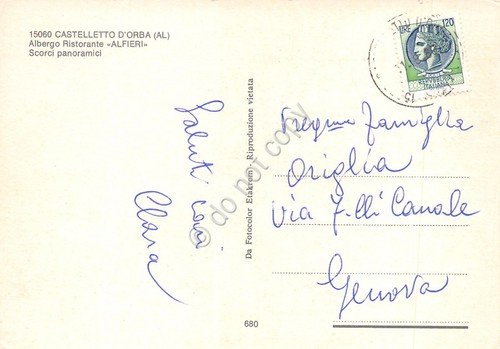 15060 CASTELLETTO D'ORBA (AL)
Albergo Ristorante «ALFIERI»
Scorci panoramici
Saluti cari
Clara
Da Fotocolor Etakrom - Riproduzione vietata
© do not copy
680
LIRE 120
Preg.ma famiglia
Origlia
Via F.lli Canale
Genova